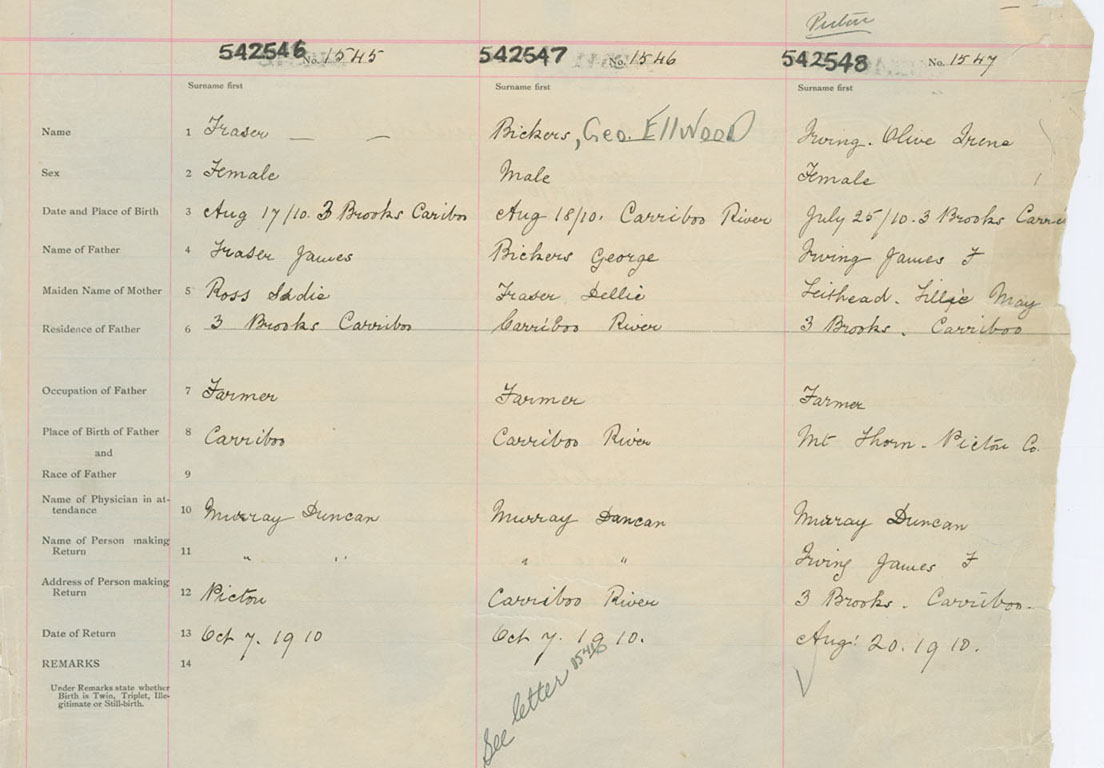 Pictou
542546 No. 1545 542547 No. 1546 542548 No. 1547
Surname first Surname first Surname first
Name 1 Fraser — — Bickers, Geo. Ellwood Irving. Olive Irene
Sex 2 Female Male Female
Date and Place of Birth 3 Aug 17/10. 3 Brooks Caribou Aug 18/10. Carriboo River July 25/10. 3 Brooks Carri
Name of Father 4 Fraser James Bickers George Irving James F
Maiden Name of Mother 5 Ross Sadie Fraser Dellie Leithead. Lillie May
Residence of Father 6 3 Brooks Carriboo Carriboo River 3 Brooks. Carriboo
Occupation of Father 7 Farmer Farmer Farmer
Place of Birth of Father 8 Carriboo Carriboo River Mt Thom - Pictou Co.
and
Race of Father 9
Name of Physician in at-
tendance 10 Murray Duncan Murray Duncan Murray Duncan
Name of Person making
Return 11 " " " " Irving James F
Address of Person making
Return 12 Pictou Carriboo River 3 Brooks. Carriboo.
Date of Return 13 Oct 7. 1910 Oct 7. 1910. Aug. 20. 1910.
REMARKS 14
Under Remarks state whether
Birth is Twin, Triplet, Ille-
gitimate or Still-birth.
See letter